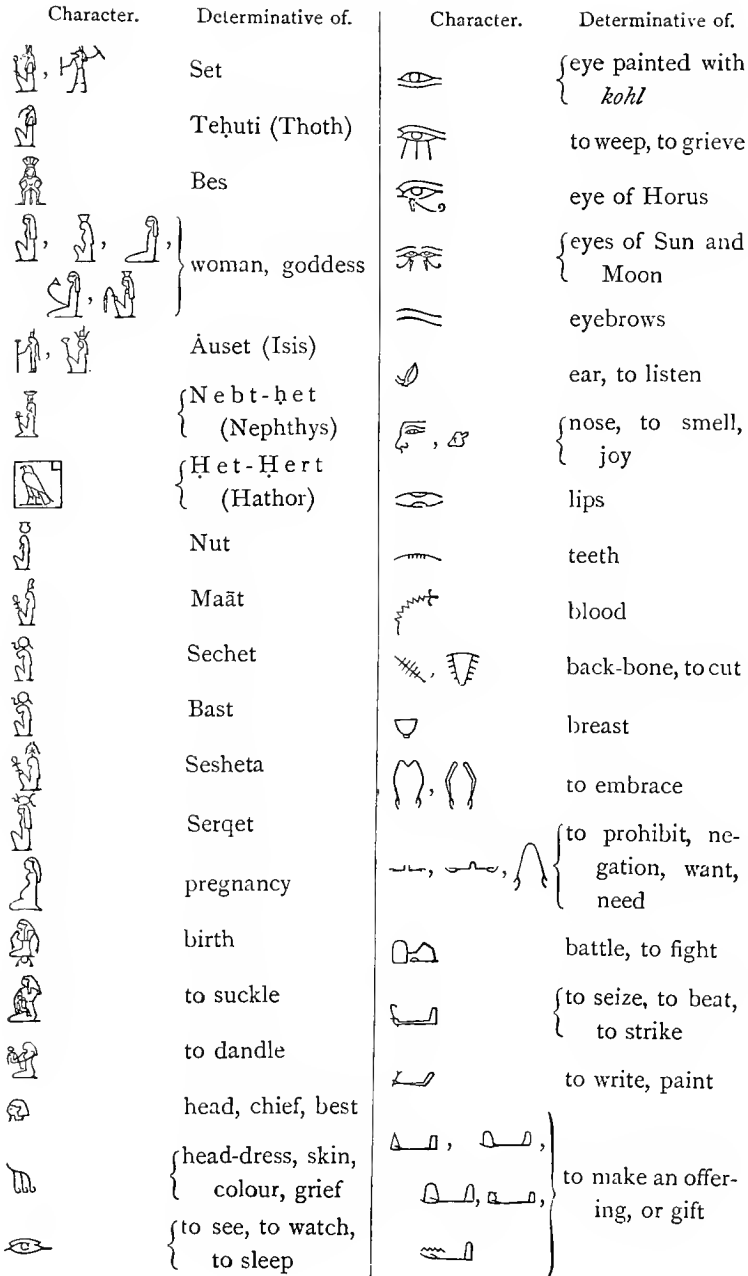 Character. Determinative of.
Set
Teḥuti (Thoth)
Bes
woman, goddess
Ȧuset (Isis)
Nebt-ḥet
(Nephthys)
Ḥet-Ḥert
(Hathor)
Nut
Maāt
Sechet
Bast
Sesheta
Serqet
pregnancy
birth
to suckle
to dandle
head, chief, best
head-dress, skin,
colour, grief
to see, to watch,
to sleep
Character. Determinative of.
eye painted with
kohl
to weep, to grieve
eye of Horus
eyes of Sun and
Moon
eyebrows
ear, to listen
nose, to smell,
joy
lips
teeth
blood
back-bone, to cut
breast
to embrace
to prohibit, ne-
gation, want,
need
battle, to fight
to seize, to beat,
to strike
to write, paint
to make an offer-
ing, or gift